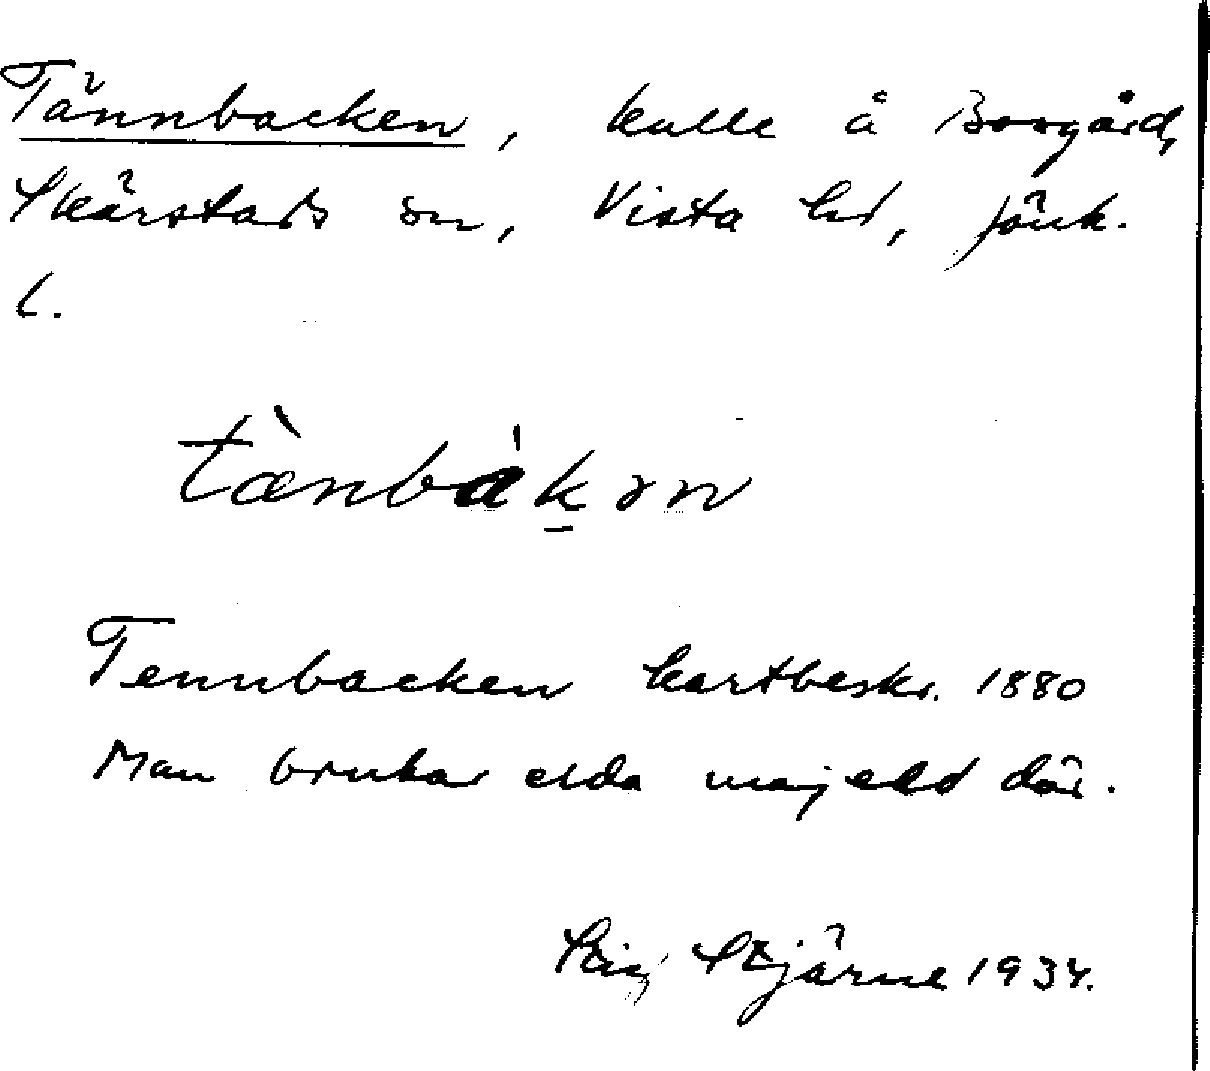 Tännbacken, kulle å Borgård,
Skärstads sn, Vista hd, Jönk.
l.
tæ̀nbàkən
Tennbacken kartbeskr. 1880
Man brukar elda majeld där.
Stig Stjärne 1934.